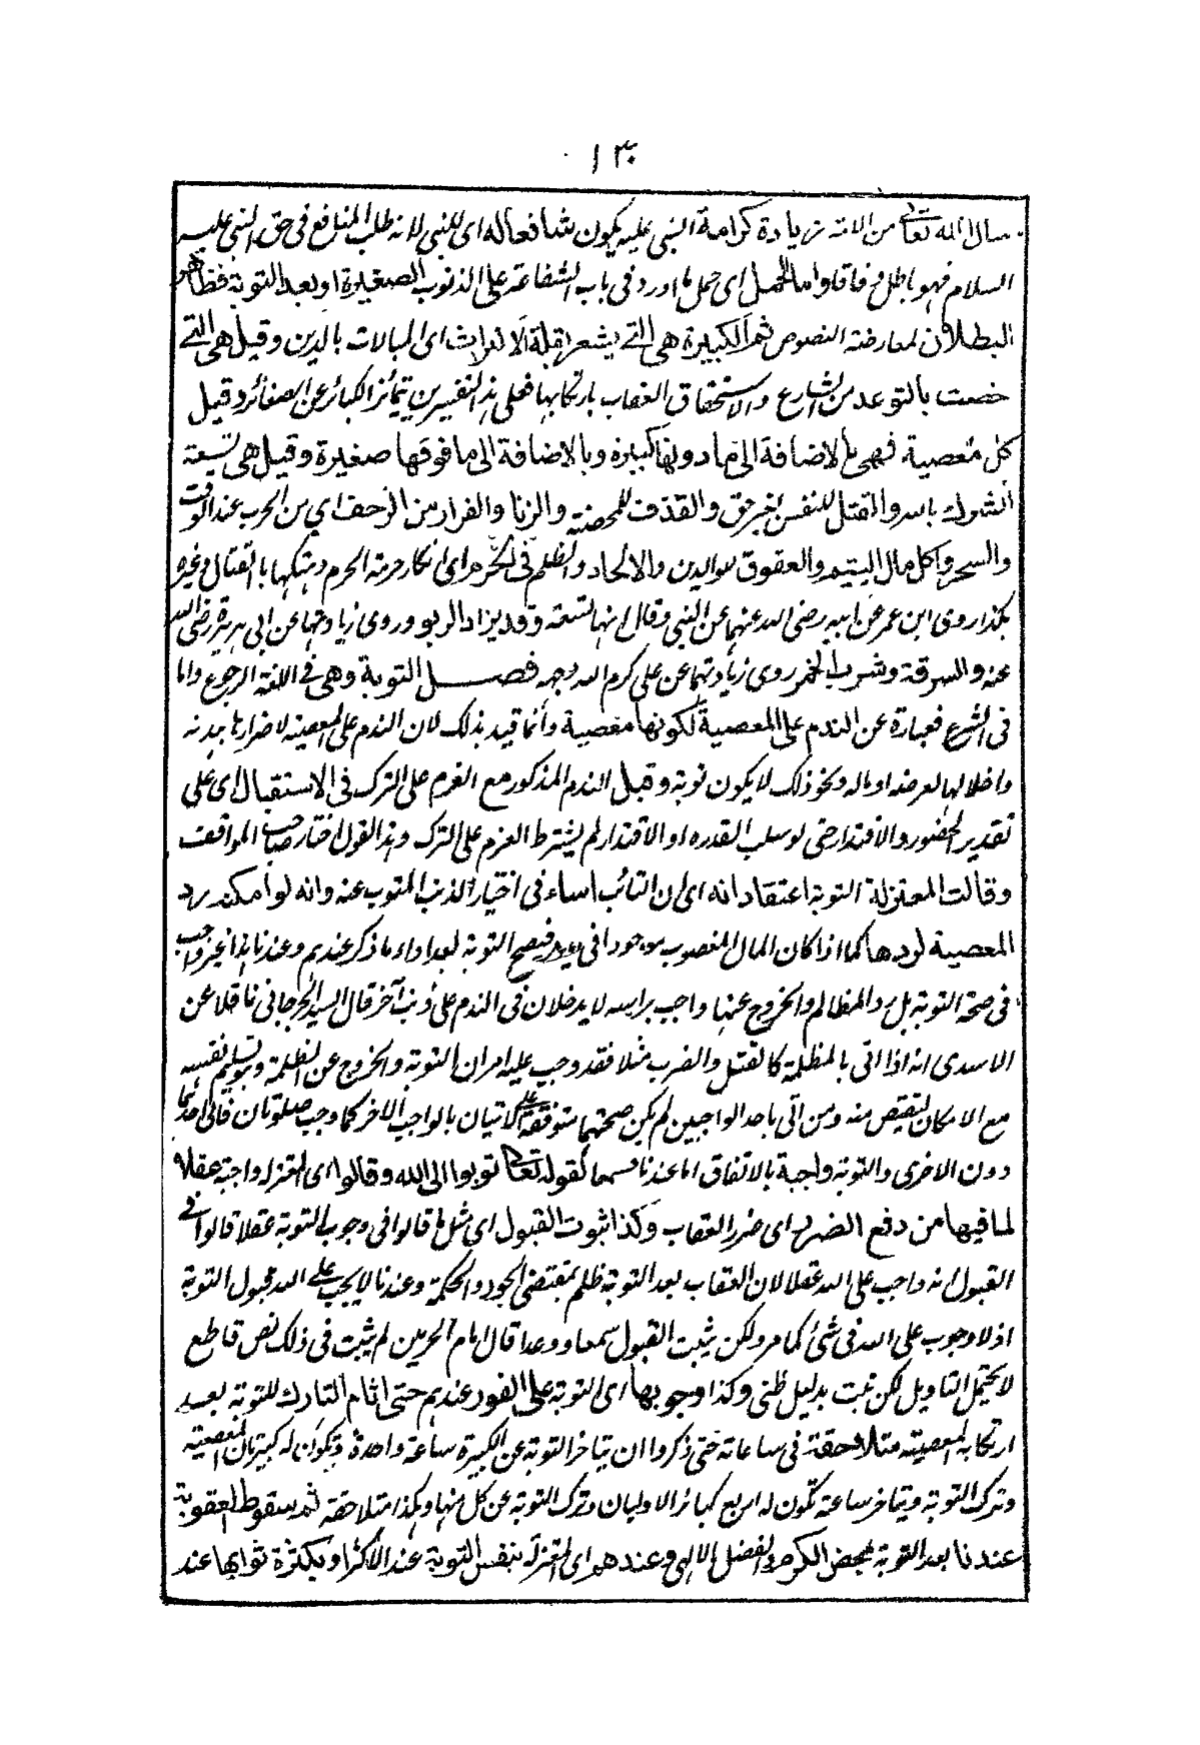 ١٣٠
سال الله تعالى من الامة زيادة كرامة النبي عليه يكون شافعا له اى للنبى لانه طلب المنافع فى حق النبى عليه
السلام فهو باطل وفاقا واما الحمل اى حمل ما اورد فى باب الشفاعة على الذنوب الصغيرة او بعد التوبة فظاهر
البطلان لمعارضة النصوص ثم الكبيرة هى التى يشعر بقلة الاكتراث اى المبالات بالدين وقيل هى التى
خصت بالتوعد من الشارع والاستحقاق العقاب بارتكابها فعلى هذا التفسيرين يتمائز الكبائر عن الصغائر وقيل
كل معصية فهى بالاضافة الى ما دونها كبيرة وبالاضافة الى ما فوقها صغيرة وقيل هى تسعة
الشرك بالله والقتل للنفس بغير حق والقذف للمحصنة والزنا والفرار من الزحف اى من الحرب عند الوقت
والسحر واكل مال اليتيم والعقوق للوالدين والالحاد والظلم فى الحرم اى انكار حرمة الحرم وهتكها بالقتال وغيره
هكذا روى ابن عمر عن ابيه رضى الله عنهما عن النبى وقال انها تسعة وقد يزاد الربو وروى زيادتها عن ابى هريرة رضى الله
عنه والسرقة وشرب الخمر روى زيادتهما عن على كرم الله وجهه فصل التوبة وهى فى اللغة الرجوع واما
فى الشرع فعبارة عن الندم على المعصية لكونها معصية وأنما قيد بذلك لان الندم على المعصية لاضرارها ببدنه
واخلالها لعرضه او ماله ونحو ذلك لا يكون توبة وقيل الندم المذكور مع العزم على الترك فى الاستقبال اى على
تقدير الحضور والاقتدار حتى لو سلب القدرة او الاقتدار لم يشترط العزم على الترك وهذا القول اختار صاحب المواقف
وقالت المعتزلة التوبة اعتقاد انه اى ان التائب اساء فى اختيار الذنب المتوب عنه وانه لو امكنه رد
المعصية لردها كما اذا كان المال المغصوب موجودا فى يده فيصح التوبة بعد اداء ما ذكر عندهم وعندنا هذا غير واجب
فى صحة التوبة بل رد المظالم والخروج عنها واجب براسه لا يدخلان فى الندم على ذنب آخر قال السيد الجرجانى ناقلا عن
الامدى انه اذا اتى بالمظلمة كالقتل والضرب مثلا فقد وجب عليه امران التوبة والخروج عن المظلمة وهو تسليم نفسه
مع الامكان ليقتص منه ومن اتى باحد الواجبين لم يكن صحتهما متوقفة على الاتيان بالواجب الاخر كما وجب صلوتان فاتى احدهما
دون الاخرى والتوبة واجبة بالاتفاق اما عندنا سمعا كقوله تعالى توبوا الى الله وقالوا اى المعتزلة واجبة عقلا
لما فيها من دفع الضرر اى ضرر العقاب وكذا ثبوت القبول اى مثل ما قالوا فى وجوب التوبة عقلا قالوا فى
القبول انه واجب على الله عقلا لان العقاب بعد التوبة ظلم بمقتضى الجود والحكمة وعندنا لا يجب على الله قبول التوبة
اذ لا وجوب على الله فى شئ كما مر ولكن يثبت القبول سمعا ووعدا قال امام الحرمين لم يثبت فى ذلك نص قاطع
لا يحتمل التاويل لكن ثبت بدليل ظنى وكذا وجوبها اى التوبة على الفور عندهم حتى اثام التارك للتوبة بعد
ارتكاب المعصية متلاحقة فى ساعاته حتى ذكروا ان بتاخر التوبة عن الكبيرة ساعة واحدة يكون له كبيرتان المعصية
وترك التوبة وبتاخر ساعة تكون له اربع كبائر الاوليان وترك التوبة عن كل منهما وهكذا متلاحقة ثم سقوط العقوبة
عندنا بعد التوبة بمحض الكرم والفضل الالهى وعندهم اى المعتزلة بنفس التوبة عند الأكثر او بكثرة ثوابها عند